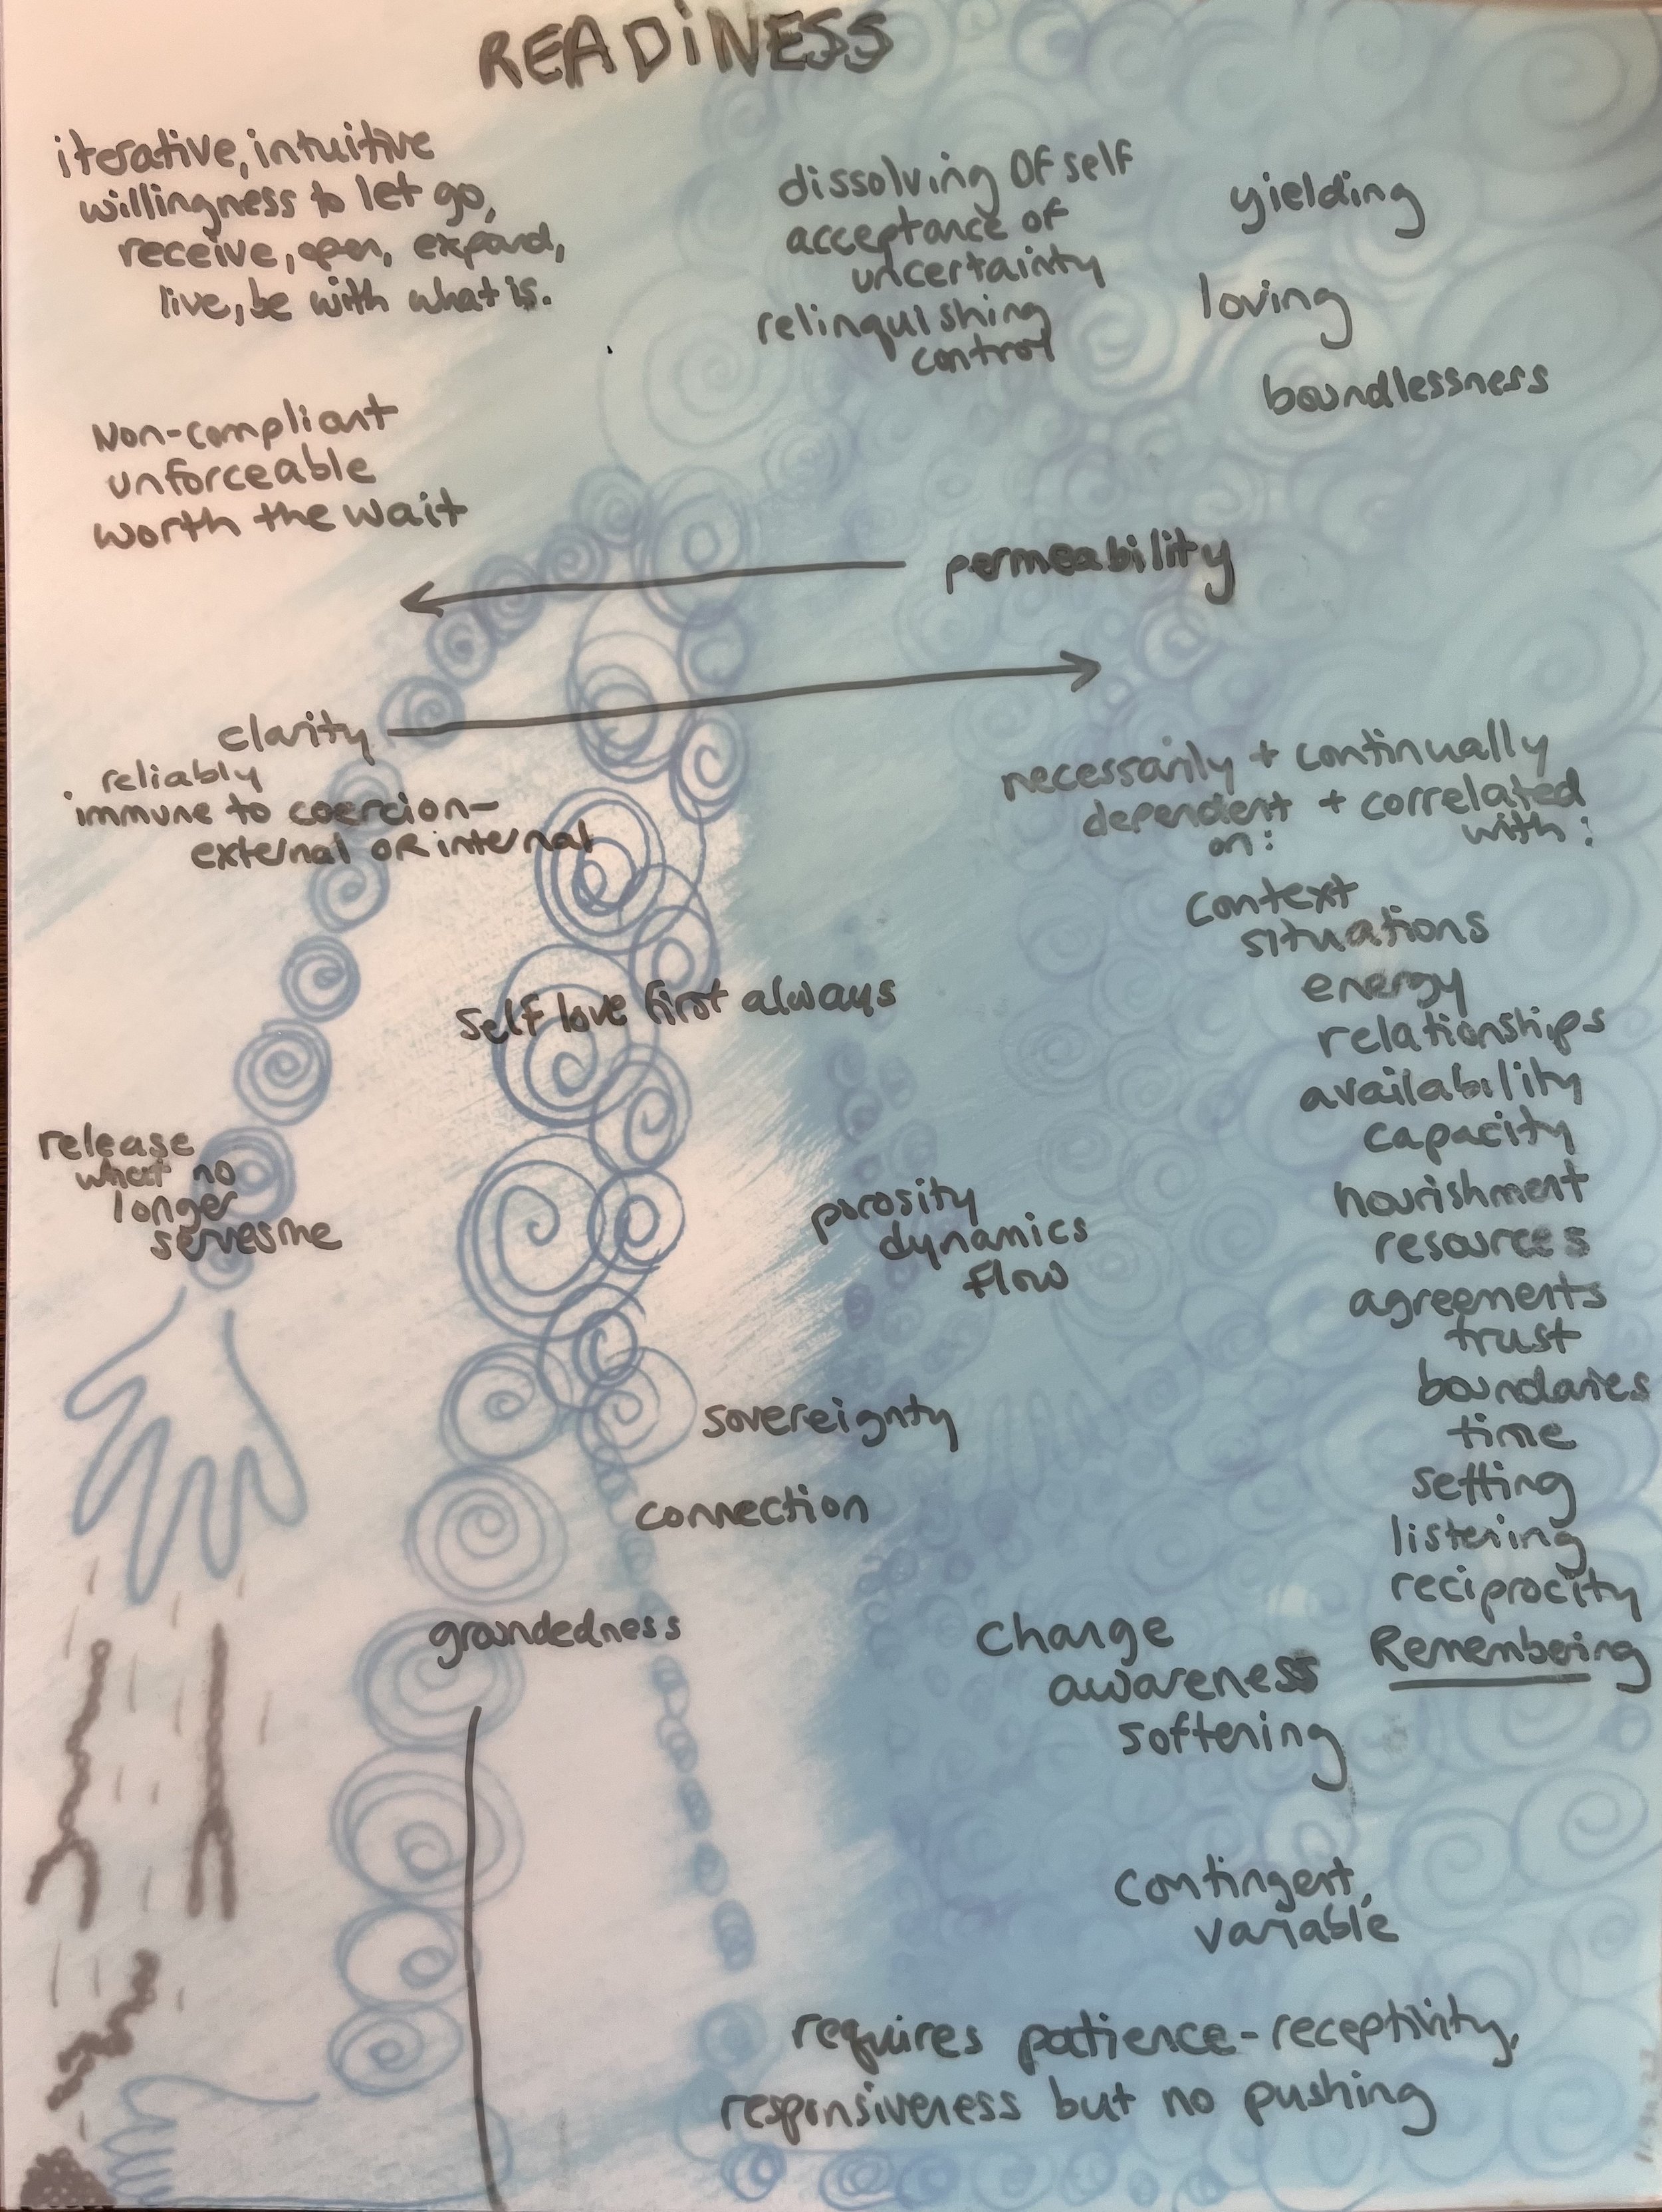 READiNESS
iterative, intuitive
willingness to let go,
receive, open, expand,
live, be with what is.
dissolving OF self
acceptance of
uncertainty
relinquishing
control
yielding
loving
boundlessness
Non-compliant
unforceable
worth the wait
permeability
clarity
reliably
immune to coercion-
external OR internal
necessarily + continually
dependent + correlated
on: with:
context
situations
energy
relationships
availability
capacity
nourishment
resources
agreements
trust
boundaries
time
setting
listening
reciprocity
Remembering
self love first always
release
what no
longer
serves me
porosity
dynamics
flow
sovereignty
connection
groundedness
Change
awareness
softening
contingent,
variable
requires patience-receptivity,
responsiveness but no pushing